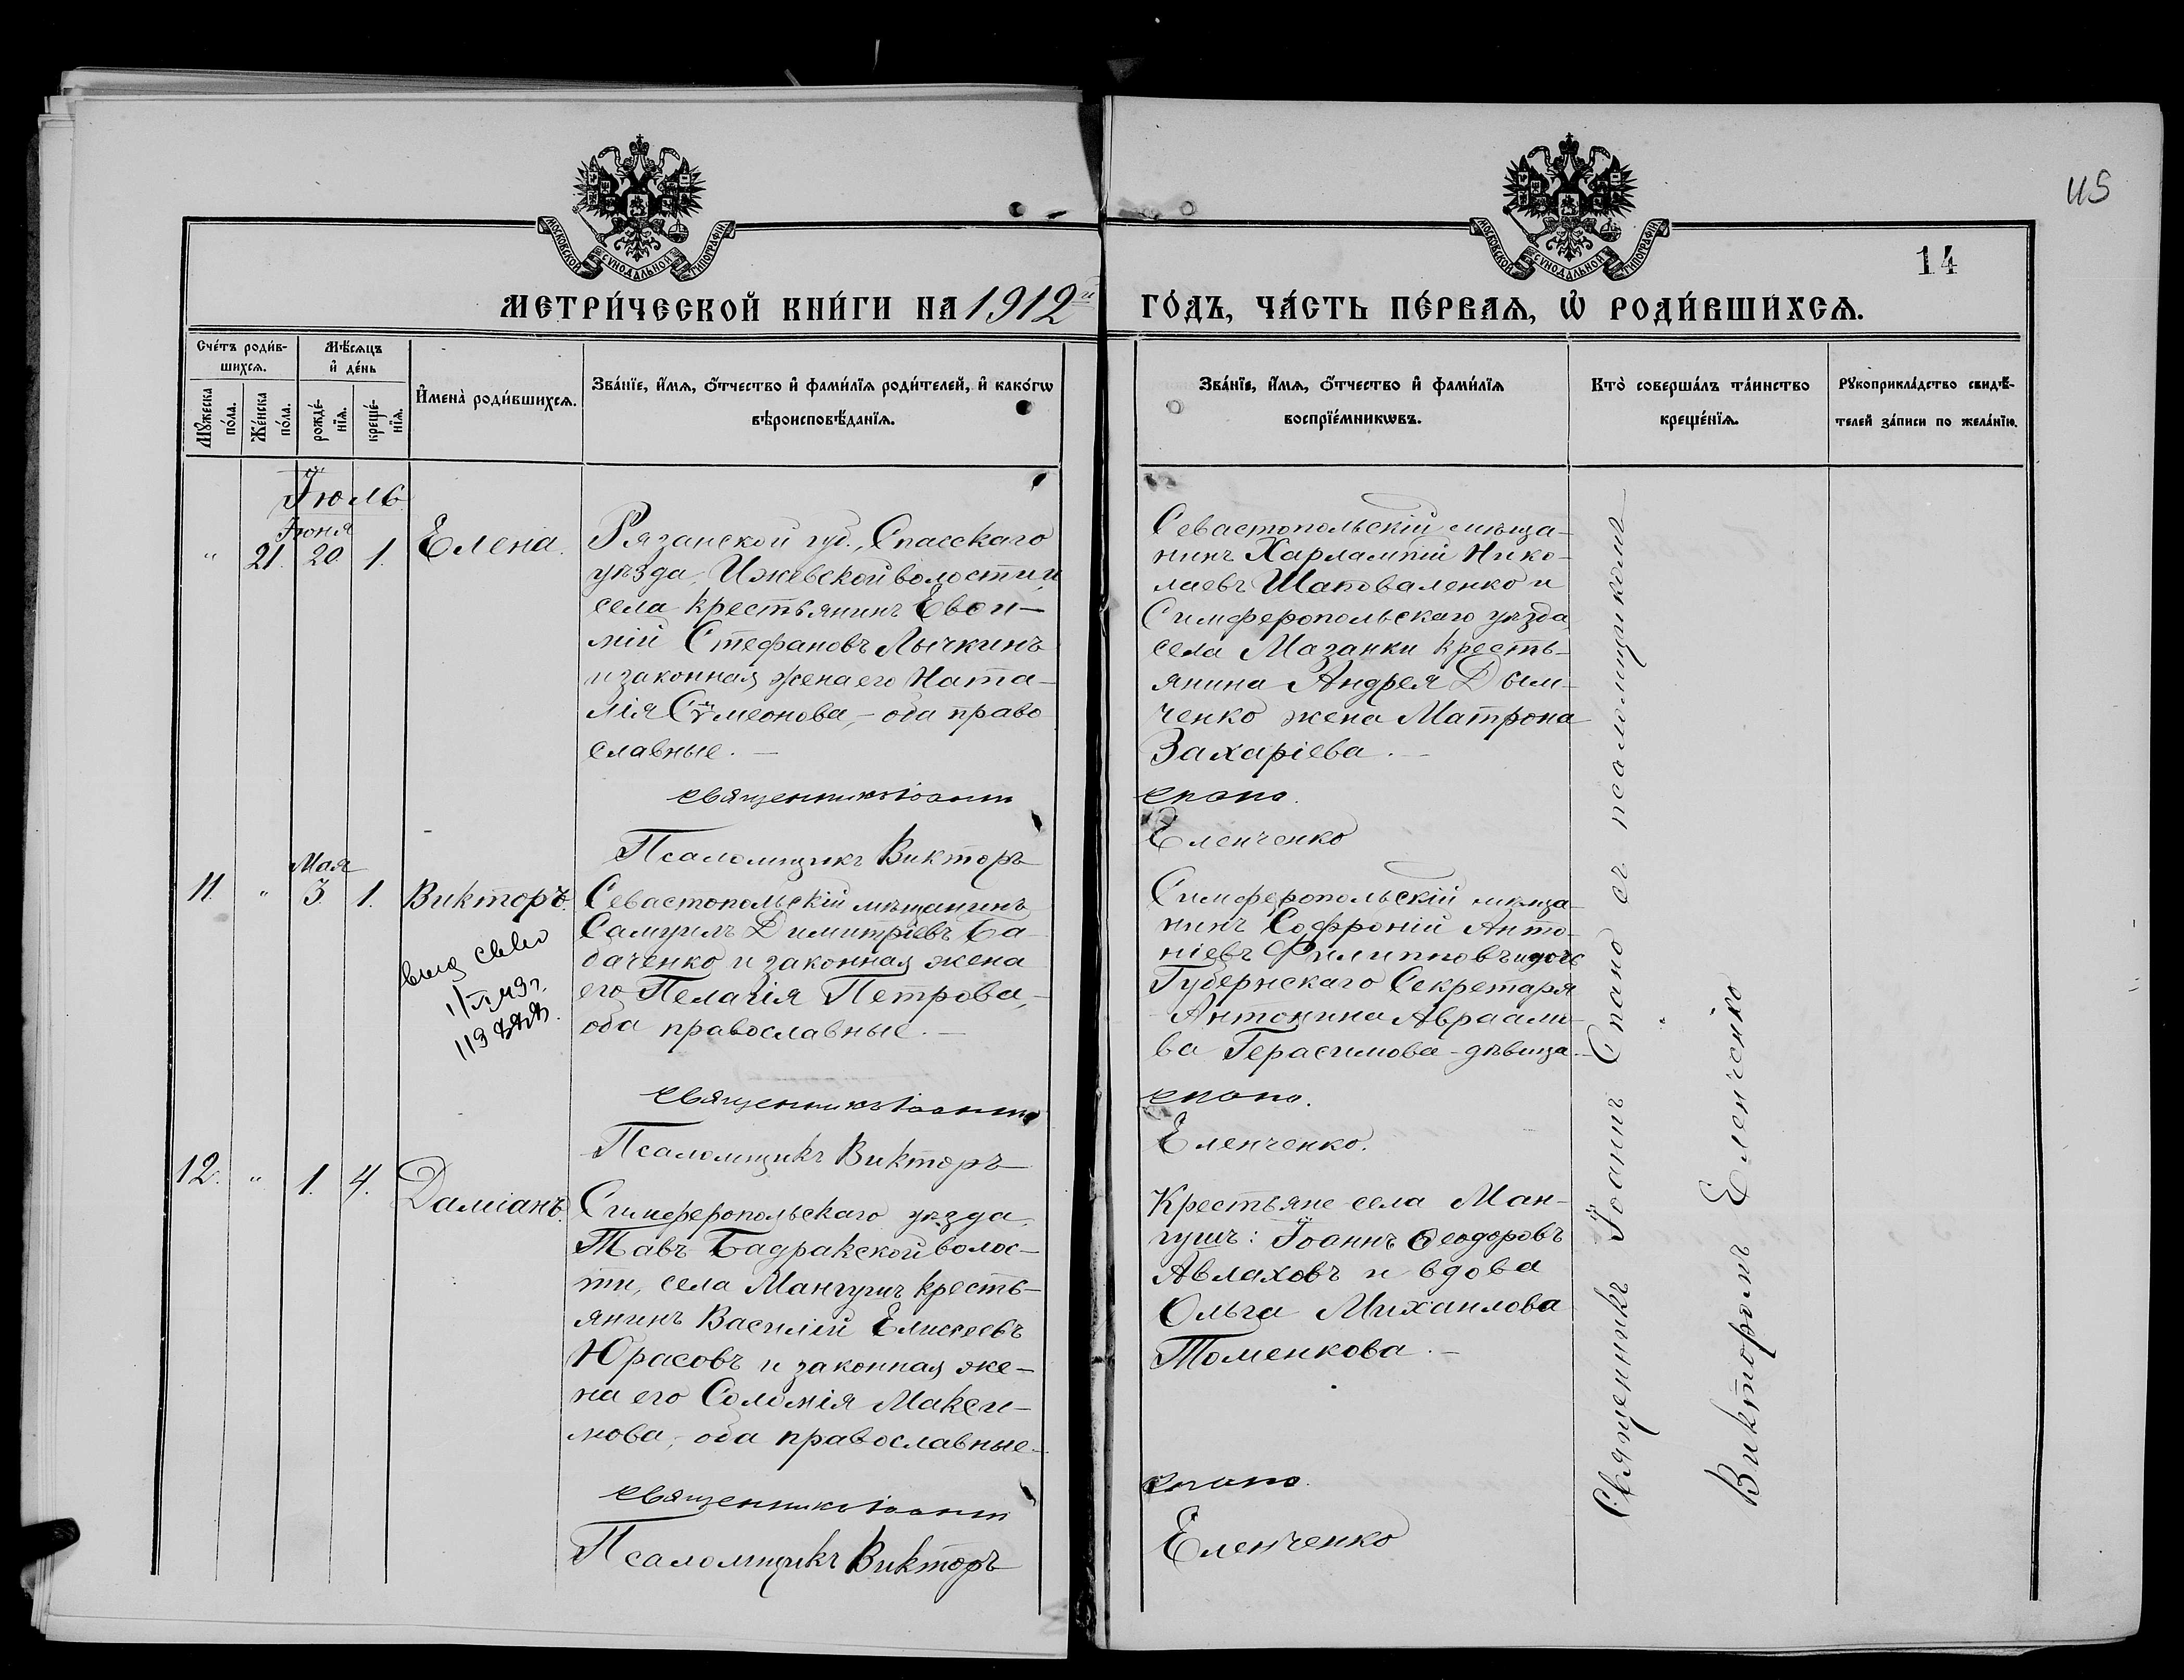 115
14
МОСКОВСКОЙ СѴНОДАЛЬНОЙ ТИПОГРАФІИ
МОСКОВСКОЙ СѴНОДАЛЬНОЙ ТИПОГРАФІИ
МЕТРИ́ЧЕСКОЙ КНИ́ГИ НА 1912й
ГО́ДЪ, ЧА́СТЬ ПЕ́РВАѦ, Ѡ҆ РОДИ́ВШИХСѦ.
Сче́тъ роди́в-
шихсѧ.
Мꙋ́жеска по́ла.
Же́нска по́ла.
Мѣ́сѧцъ и҆ де́нь
рожде́-
нїѧ.
креще́-
нїѧ.
И҆мена̀ роди́вшихсѧ.
Зва́нїе, и҆́мѧ, ѻ҆́тчество и҆ фами́лїѧ роди́телей, и҆ како́гѡ
вѣроисповѣ́данїѧ.
Зва́нїе, и҆́мѧ, ѻ҆́тчество и҆ фами́лїѧ
воспрїе́мникѡвъ.
Кто̀ соверша́лъ та́инство
креще́нїѧ.
Рꙋкоприкла́дство свидѣ́-
телей за́писи по жела́нїю.
Іюль
Іюня
" 21. 20 1. Елена.
Рязанской губ., Спасскаго
уѣзда, Ижевской волости и
села крестьянинъ Евѳи-
мій Стефановъ Лычкинъ
и законная жена его Ната-
лія Сѵмеонова, – оба право
славные. –
Священникъ Іоаннъ
Псаломщикъ Викторъ
Севастопольскій мѣща-
нинъ Харлампій Нико-
лаевъ Шаповаленко и
Симферопольскаго уѣзда
села Мазанки кресть-
янина Андрея Дым-
ченко жена Матрона
Захаріева. –
Спано.
Еленченко
Мая
11. " 3. 1. Викторъ.
выд свѣд
Севастопольскій мѣщанинъ
Самуилъ Димитріевъ Ба-
баченко и законная жена
его Пелагія Петрова, –
оба православные. –
Священникъ Іоаннъ
Псаломщикъ Викторъ
Симферопольскій мѣща-
нинъ Софроній Анто-
ніевъ Филипповъ и дочь
Губернскаго Секретаря
Антонина Авраамо-
ва Герасимова – дѣвица. –
Спано.
Еленченко.
12. " 1. 4. Даміанъ.
Симферопольскаго уѣзда,
Тавъ Бадракской волос-
ти, села Мангушъ кресть-
янинъ Василій Елисеевъ
Юрасовъ и законная же-
на его Соломія Макси-
мова, оба православные. –
Священникъ Іоаннъ
Псаломщикъ Викторъ
Крестьяне села Ман-
гушъ: Іоаннъ Ѳеодоровъ
Авлаховъ и вдова
Ольга Михаилова
Томенкова. –
Спано.
Еленченко
Священникъ Іоаннъ Спано съ псаломщикомъ
Викторомъ Еленченко